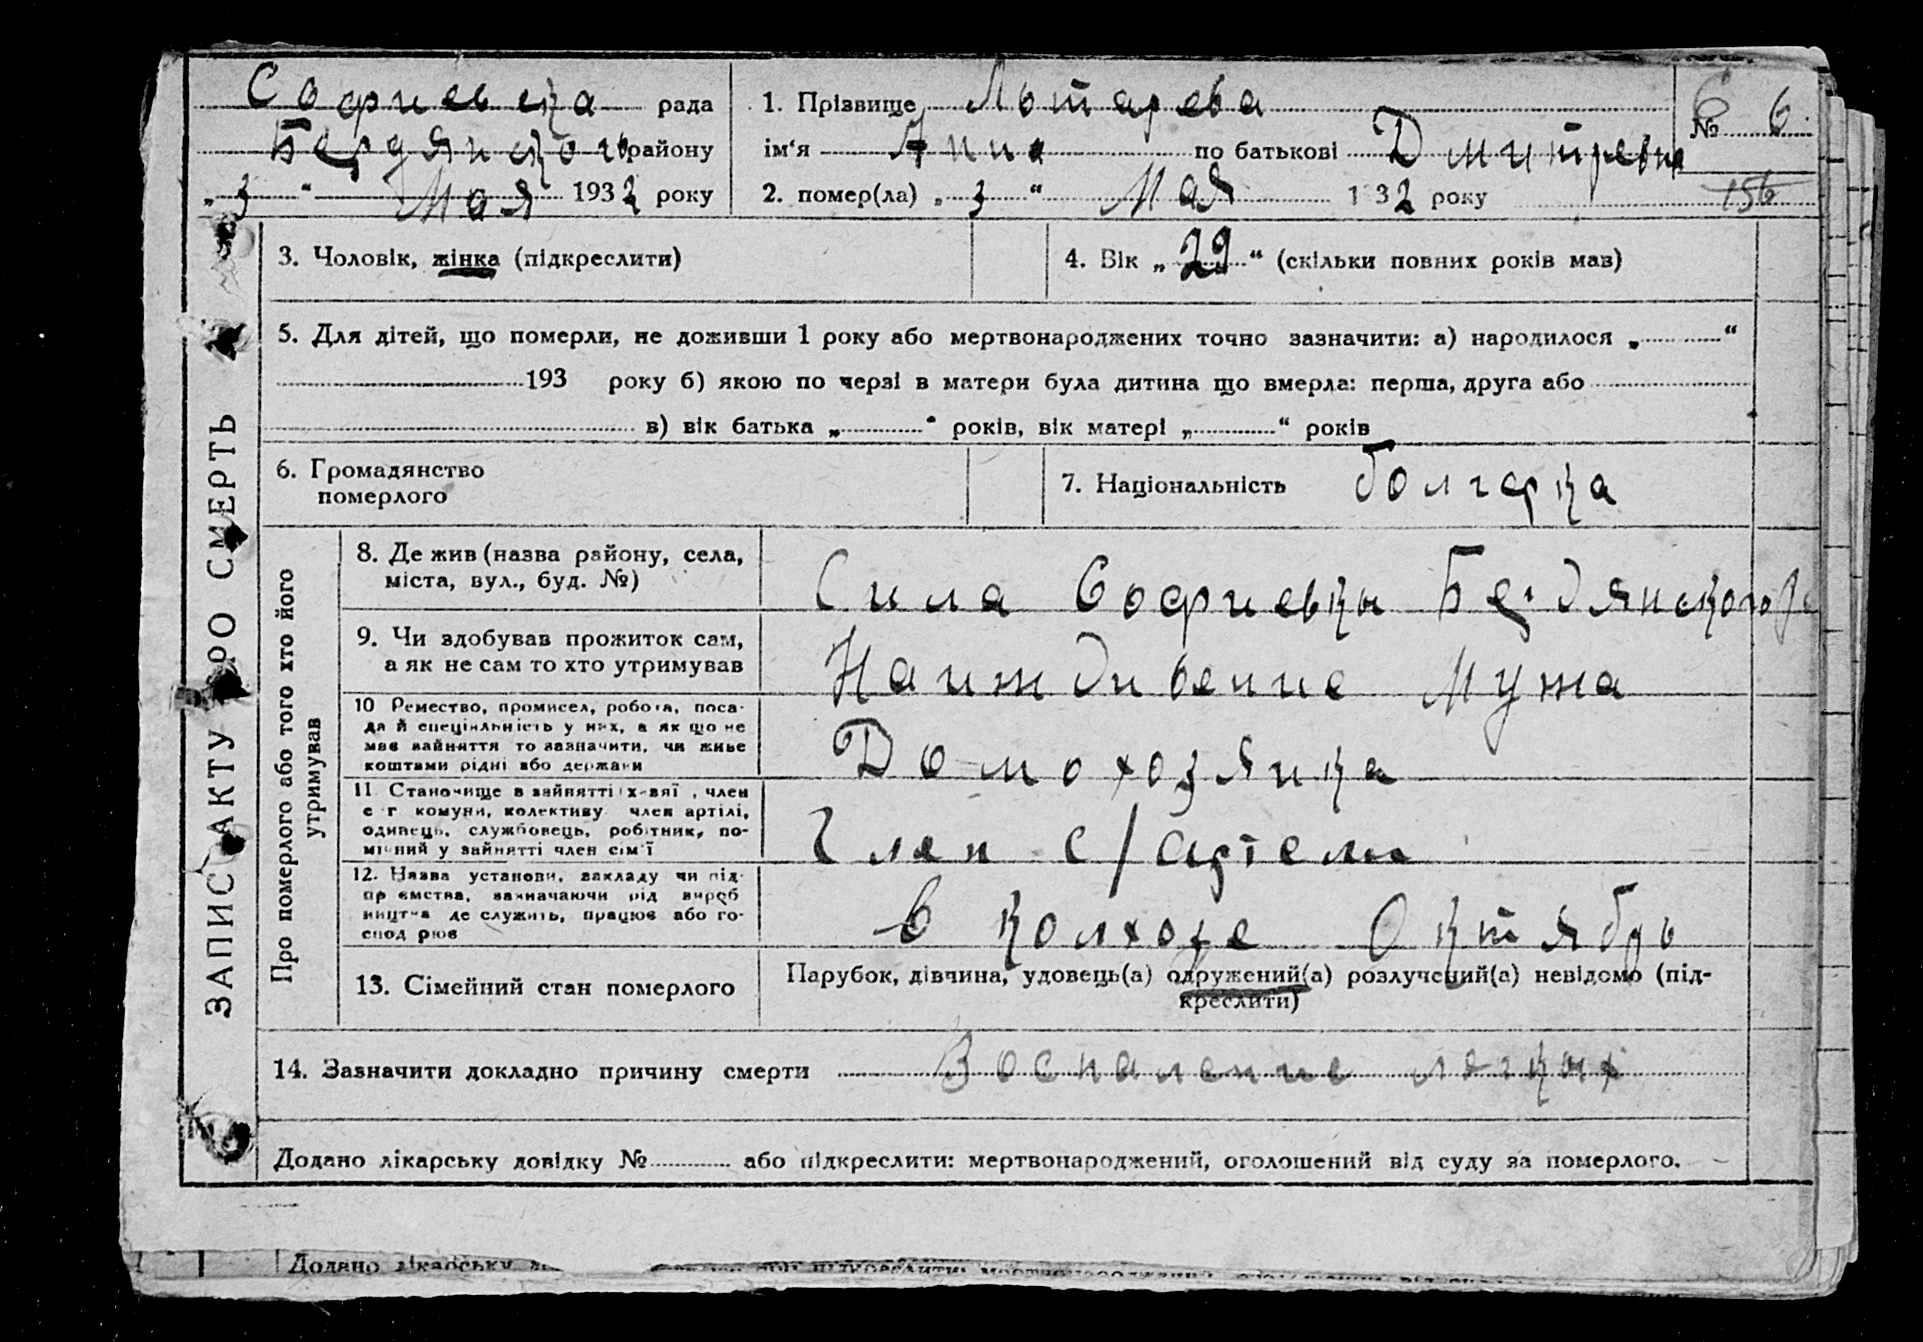 Софиевка рада
Бердянского району
„ 3 “ Мая 1932 року
1. Прізвище Лютарева
ім‘я Анна по батькові Дмитревна
2. помер(ла) „ 3 “ Мая 1932 року
№ 6
156
ЗАПИС АКТУ ПРО СМЕРТЬ
3. Чоловік, жінка (підкреслити)
4. Вік „ 29 “ (скільки повних років мав)
5. Для дітей, що померли, не доживши 1 року або мертвонароджених точно зазначити: а) народилося „ “
193 року б) якою по черзі в матери була дитина що вмерла: перша, друга або
в) вік батька „ “ років, вік матері „ “ років
6. Громадянство
померлого
7. Національність болгарка
Про померлого або того хто його
утримував
8. Де жив (назва району, села,
міста, вул., буд. №)
Сила Софиевки Бердянского
9. Чи здобував прожиток сам,
а як не сам то хто утримував
Наиждивение Мужа
10 Ремество, промисел, робота, поса-
да й спеціяльність у них, а як що не
має зайняття то зазначити, чи живе
коштами рідні або держави
Домохозяика
11 Становище в зайнятті член
с г комуни, колективу член артілі,
одинець, службовець, робітник, по-
мічний у зайнятті член сім'ї
Член с/артели
12. Назва установи, закладу чи під-
пр ємства, зазначаючи рід вироб
ництва де служить, працює або го-
спод рює
в колхозе Октябрь
13. Сімейний стан померлого
Парубок, дівчина, удовець(а) одружений(а) розлучений(а) невідомо (під-
креслити)
14. Зазначити докладно причину смерти Воспаление лягких
Додано лікарську довідку № або підкреслити: мертвонароджений, оголошений від суду за померлого.
Додано лікарську